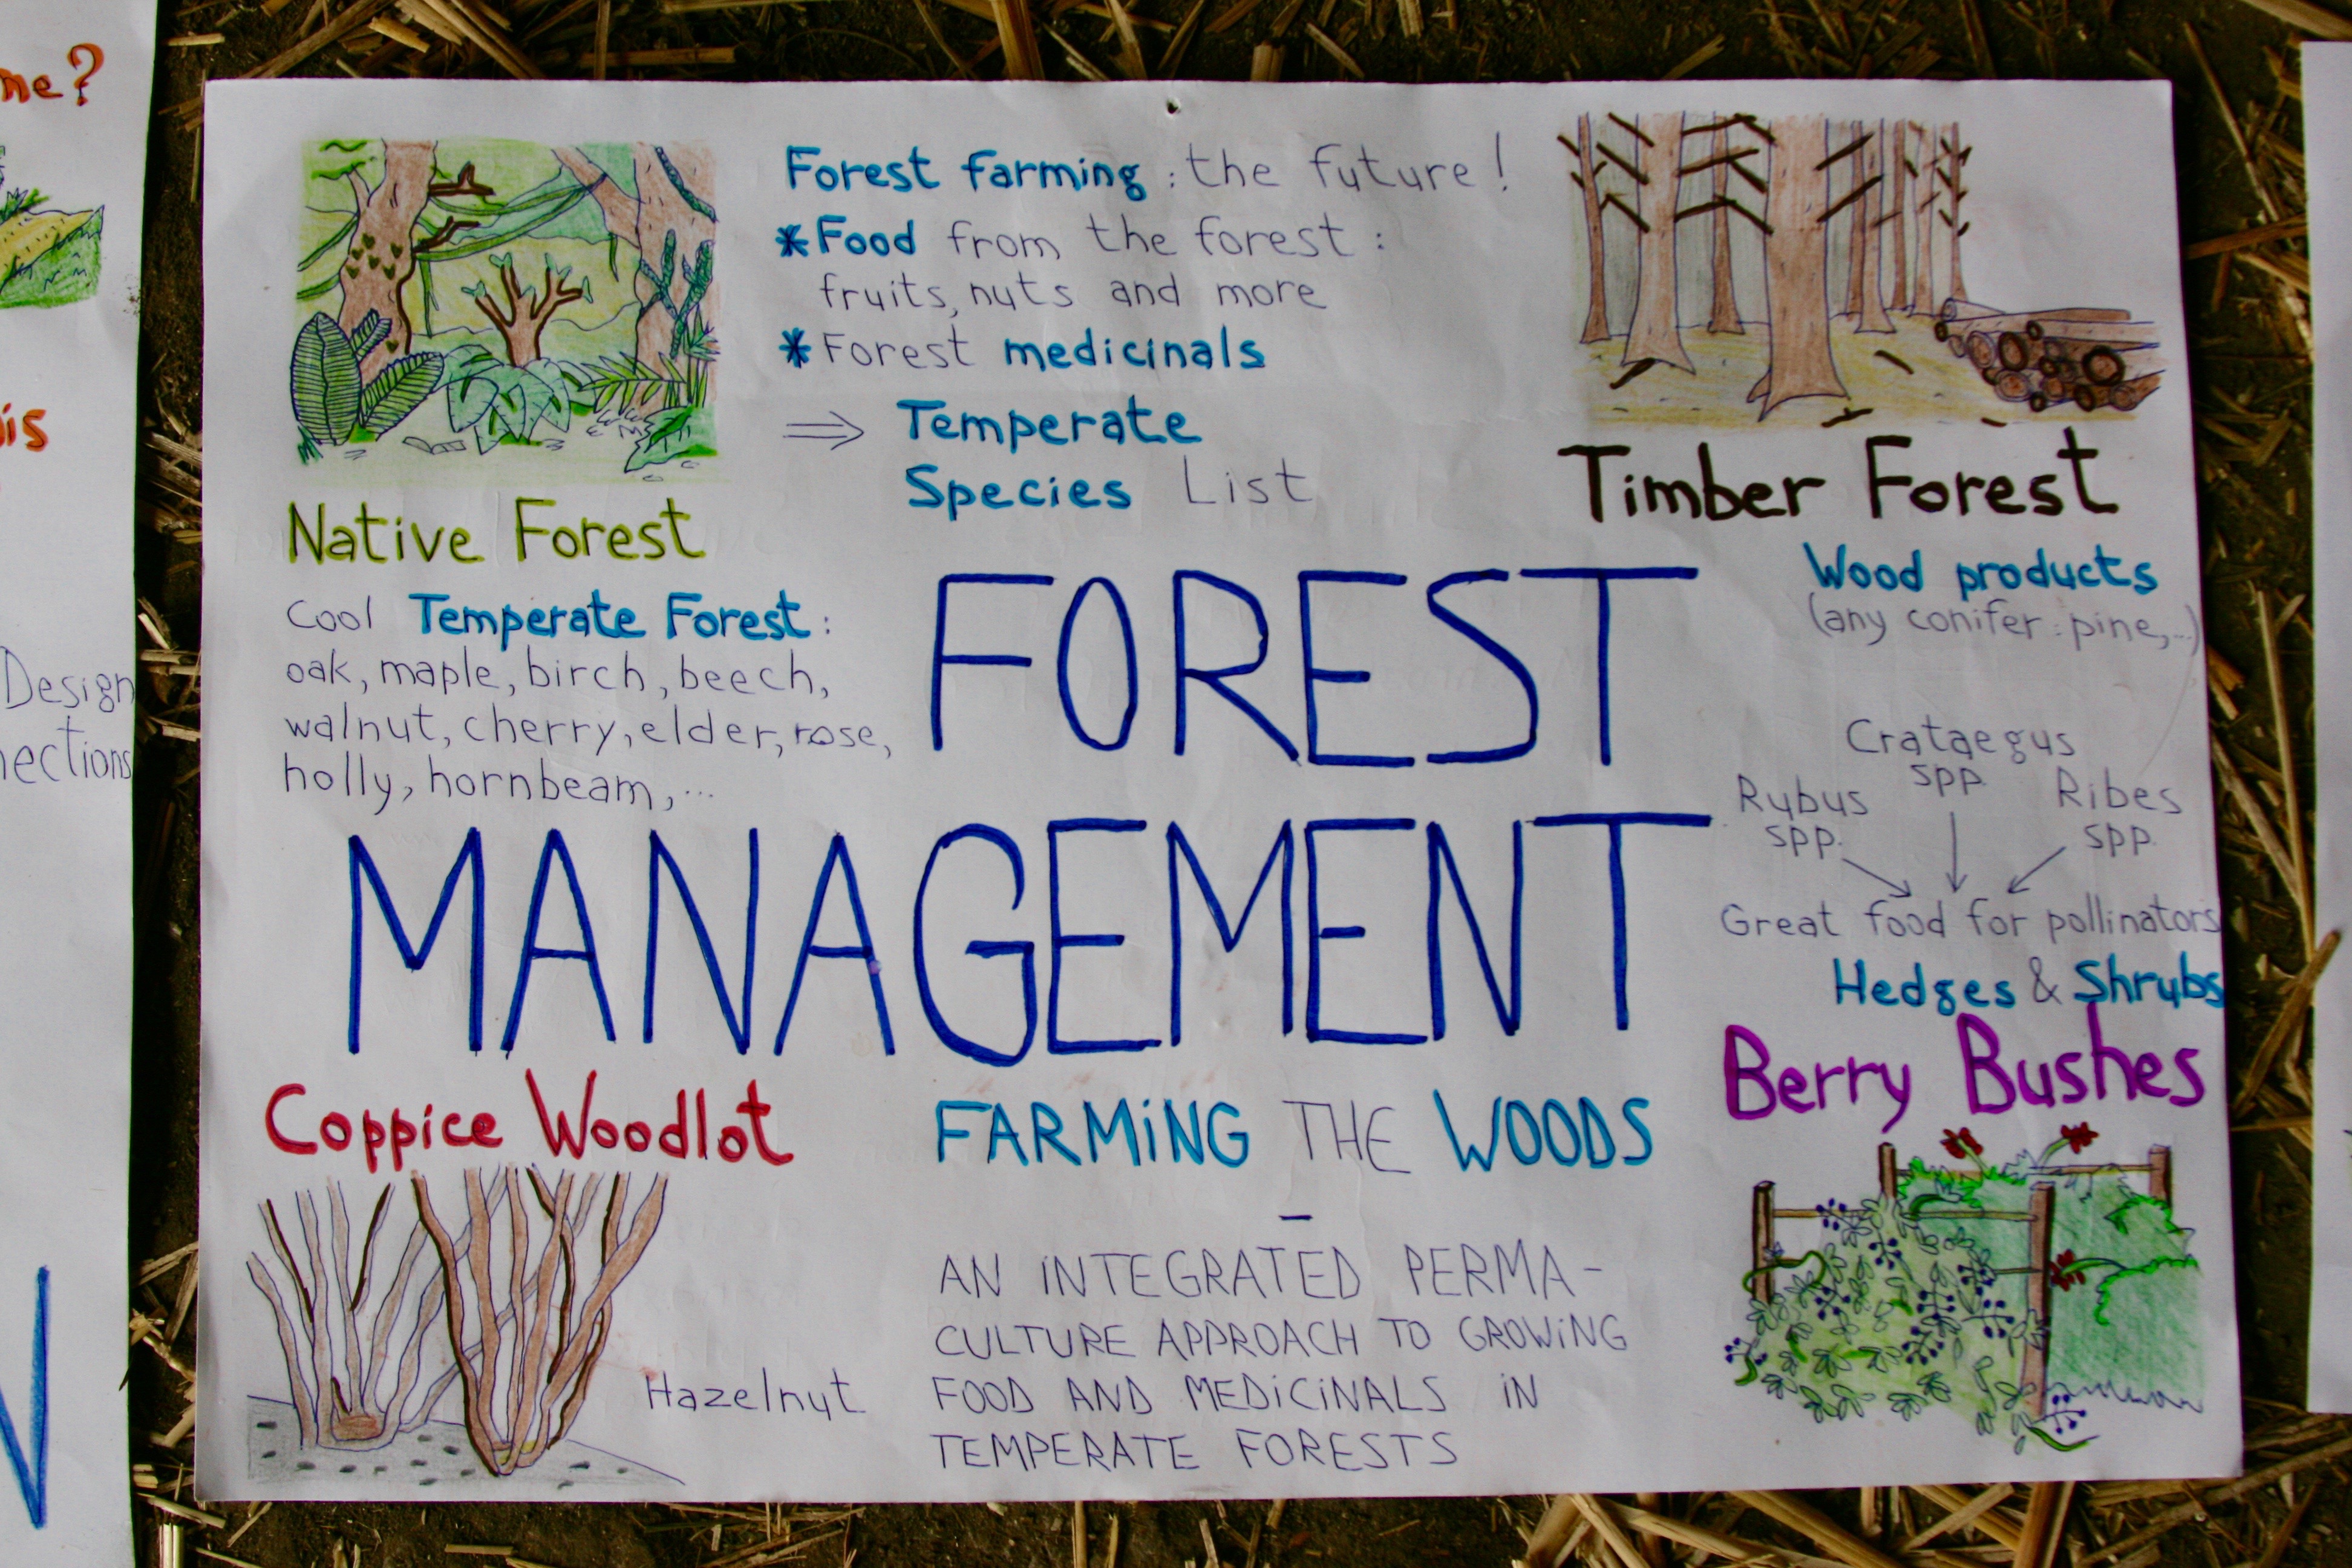 me?
is
Design
nections
Forest farming : the future !
* Food from the forest :
fruits, nuts and more
* Forest medicinals
⇒ Temperate
Species List
Native Forest
Cool Temperate Forest :
oak, maple, birch, beech,
walnut, cherry, elder, rose,
holly, hornbeam, ...
Timber Forest
Wood products
(any conifer : pine, ...)
FOREST
MANAGEMENT
Crataegus
spp.
Rubus
spp.
Ribes
spp.
Great food for pollinators
Hedges & Shrubs
Berry Bushes
Coppice Woodlot
Hazelnut
FARMiNG THE WOODS
–
AN iNTEGRATED PERMA-
CULTURE APPROACH TO GROWiNG
FOOD AND MEDiCiNALS iN
TEMPERATE FORESTS